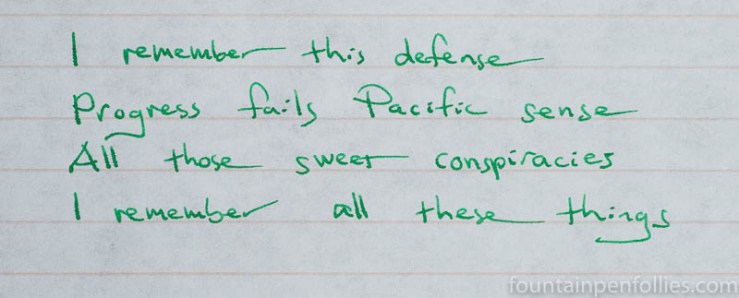 I remember this defense
Progress fails Pacific sense
All those sweet conspiracies
I remember all these things
fountainpenfollies.com